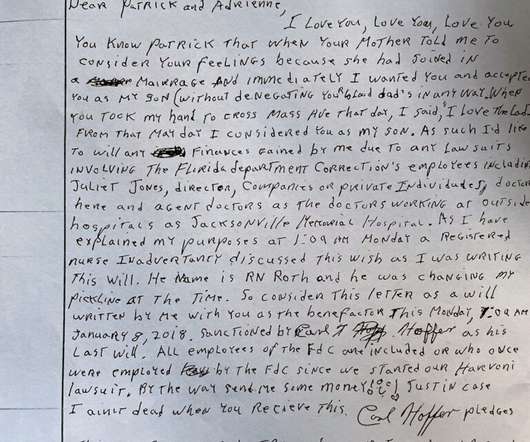 Dear Patrick and Adrienne,
I Love You, Love You, Love You
You Know Patrick that when your Mother Told me To
consider your Feelings because she had joined in
a Mairrage And immediately I wanted you and accepted
you as my son (without denegating your blood dad's in any way. When
you took my hand to cross Mass Ave that day, I said, "I Love the Lad.
From that May day I considered you as my son. As such I'd like
To will any Finances gained by me due to any Lawsuits
involving The Florida department Correction's employees including
Juliet Jones, director, Companies or private Individuals, doctors
here and agent doctors as the doctors working at outside
hospitals as Jacksonville Memorial Hospital. As I have
explained my purposes at 1:09 AM Monday a Registered
nurse Inadvertancy discussed this wish as I was writing
This will. He Name is RN Roth and he was changing my
pickline at The Time. So consider this letter as a will
written by me with you as the benefactor This Monday, 1:09 AM
January 8, 2018. Sanctioned by Carl T Hoffer as his
Last will. All employees of the FDC are included or who once
were employed by the FDC since we started our Harvoni
lawsuit. By the way send me some money! Just in case
I ain't dead when you Recieve This. Carl Hoffer pledges